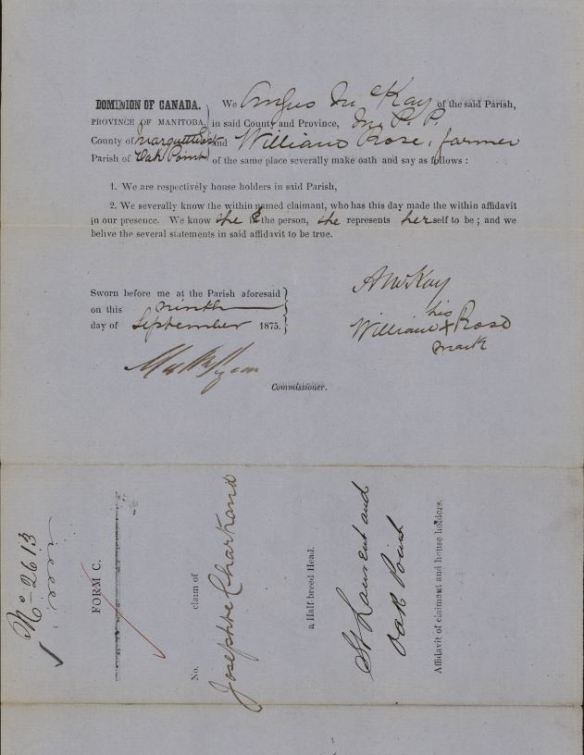 DOMINION OF CANADA. We Angus McKay of the said Parish,
PROVINCE OF MANITOBA, in said County and Province, M.P.P.
County of Marquette and William Rose, farmer
Parish of Oak Point of the same place severally make oath and say as follows :
1. We are respectively house holders in said Parish,
2. We severally know the within named claimant, who has this day made the within affidavit
in our presence. We know she is the person, she represents herself to be ; and we
belive the several statements in said affidavit to be true.
Sworn before me at the Parish aforesaid
on this ninth
day of September 1875.
A McKay
his
William X Rose
mark
Commissioner.
No 2613
FORM C.
No. claim of
Josephte Chartrand
a Half-breed Head.
St Laurent and
Oak Point
Affidavit of claimant and house holders.